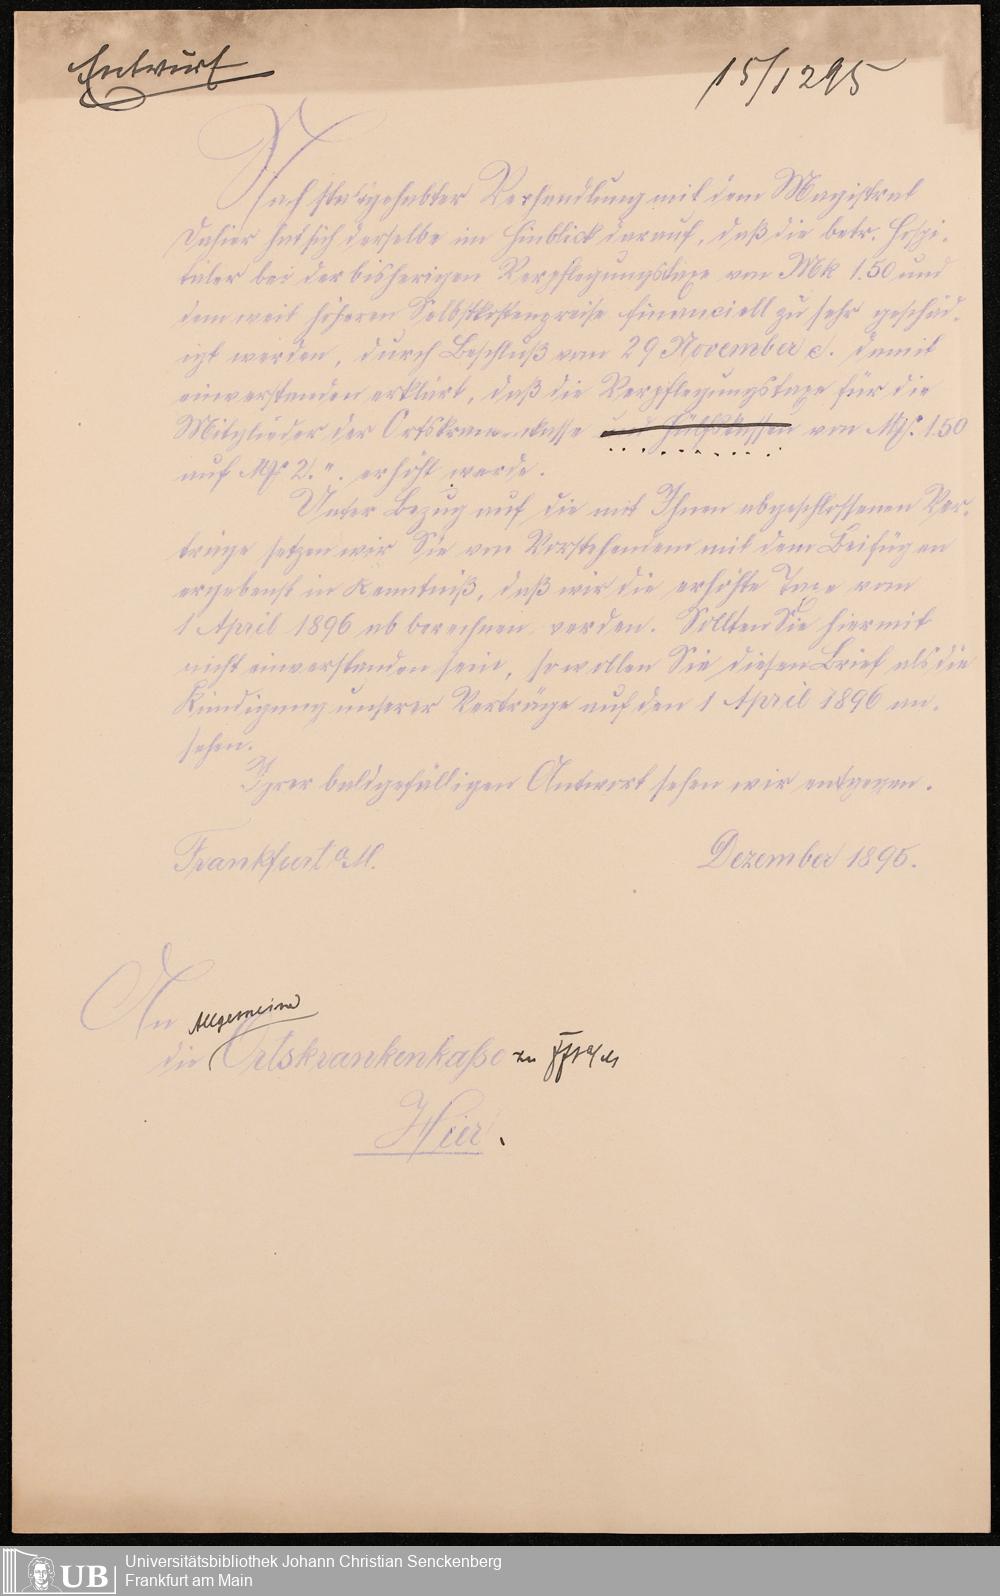 Entwurf
15/12 95
Nach stattgehabter Verhandlung mit dem Magistrat
dahier hat sich derselbe im Hinblick darauf, daß die betr. Hospi-
täler bei der bisherigen Verpflegungstaxe von Mk 1.50 und
dem weit höheren Selbstkostenpreise financiell zu sehr geschäd-
igt werden, durch Beschluß vom 29 November c. damit
einverstanden erklärt, daß die Verpflegungstaxe für die
Mitglieder der Ortskrankenkasse und Hülfskassen von Mk. 1.50
auf Mk 2.". erhöht werde.
Unter Bezug auf die mit Ihnen abgeschlossenen Ver-
träge setzen wir Sie von Vorstehendem mit dem Beifügen
ergebenst in Kenntniß, daß wir die erhöhte Taxe vom
1 April 1896 ab berechnen werden. Sollten Sie hiermit
nicht einverstanden sein, so wollen Sie diesen Brief als die
Kündigung unserer Verträge auf den 1 April 1896 an-
sehen.
Ihrer baldgefälligen Antwort sehen wir entgegen.
Frankfurt a/M.
Dezember 1895.
An
Allgemeine
die Ortskrankenkaße zu
Hier.
UB
Universitätsbibliothek Johann Christian Senckenberg
Frankfurt am Main